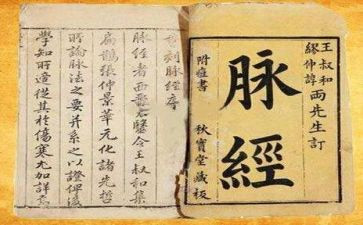 王叔和
繆仲諄
兩先生訂
脈經
附症書
秋寶堂藏板
刻脈經序
脈經者西晉名醫令王叔和集
扁鵲張仲景華元化諸先哲
所論脈法之要并系之以證俾後
學知所適從其於傷寒尤加詳焉